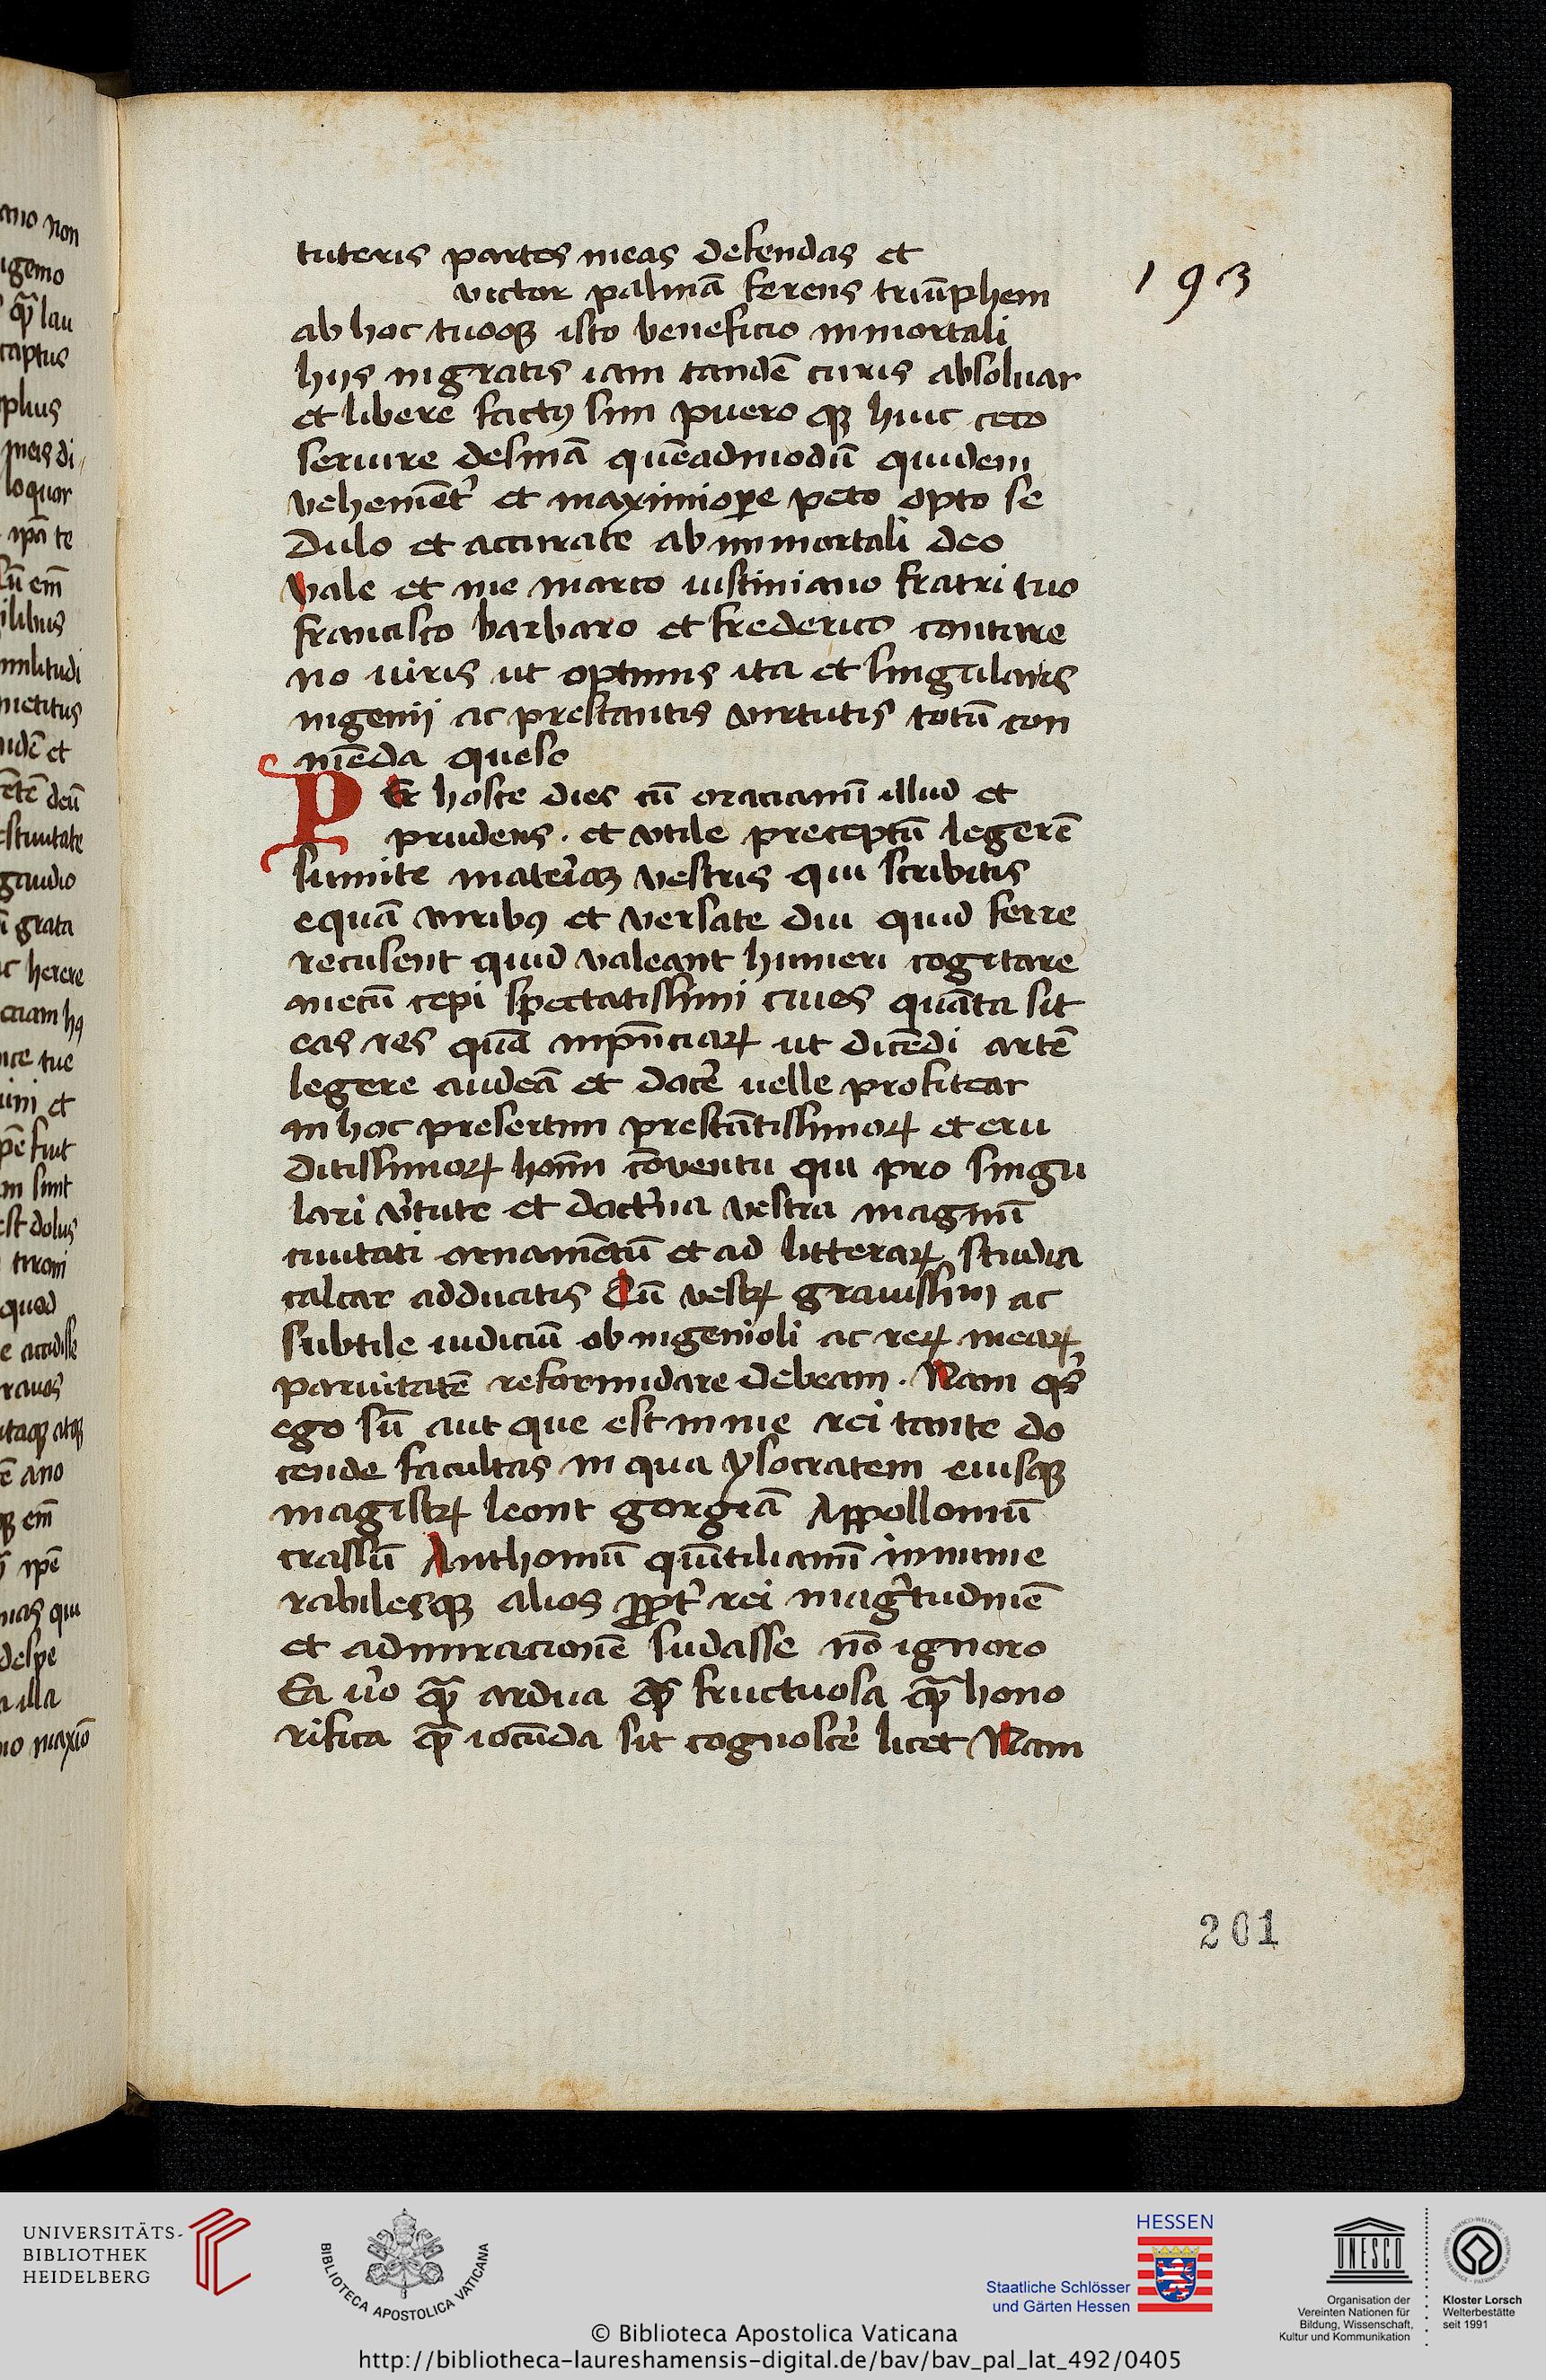 tuteris partes meas defendas et
victor palmā ferens triūphem
193
ab hoc tuoqꝫ isto beneficio inmortali
hijs ingratis iam tandē curis absoluar
et libere factꝰ sim puero qꝫ huic ceco
seruire desinā quēadmodū quidem
vehemēt᷑ et maximioꝑe peto opto se
dulo et accurate ab immortali deo
Vale et me marco iustiniano fratri tuo
francisco barbaro et frederico contare
no uiris ut optimis ita et singularis
ingenij ac prestantis virtutis totū con
mēda queso
PEr hosce dies cū oracianū illud et
prudens . et vtile preceptū legerē
sumite materiā vestris qui scribitis
equā viribꝰ et versate diu quid ferre
recusent quid valeant humeri cogitare
mecū cepi spectatissimi ciues quāta sit
eas res quā inpn̄ciaꝝ ut dicēdi artē
legere audeā et docē uelle profitear
in hoc presertim prestātissimoꝝ et eru
ditissimoꝝ hoīm cōuentu qui pro singu
lari v᷑tute et doct᷑ina vestra magnū
ciuitati ornamētū et ad litteraꝝ studia
calcar adducitis Cū vestꝝ grauissim ac
subtile iudiciū ob ingenioli ac reꝝ meaꝝ
paruitatē reformidare debeam . Nam qͥs
ego sū aut que est in me rei tante do
cende facultas in qua ysocratem eiusqꝫ
magistꝝ leont gorgiā Appolloniū
crassū Anthoniū quītilianū innume
rabilesqꝫ alios ꝓpt᷑ rei magͥtudinē
et admiracionē sudasse nō ignoro
Ea v᷑o qͣ̄ ardua qͣ̄ fructuosa qͣ̄ hono
rifica qͣ̄ iocūda sit cognosc᷑e licet Nam
201
UNIVERSITÄTS-
BIBLIOTHEK
HEIDELBERG
BIBLIOTECA APOSTOLICA VATICANA
HESSEN
Staatliche Schlösser
und Gärten Hessen
UNESCO
Organisation der
Vereinten Nationen für
Bildung, Wissenschaft,
Kultur und Kommunikation
Kloster Lorsch
Welterbestätte
seit 1991
© Biblioteca Apostolica Vaticana
http://bibliotheca-laureshamensis-digital.de/bav/bav_pal_lat_492/0405